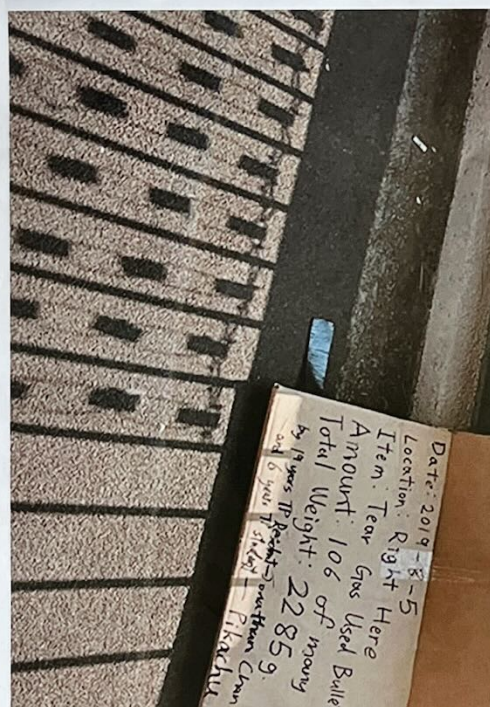 Date: 2019-8-5
Location: Right Here
Item: Tear Gas Used Bulle
Amount: 106 of many
Total Weight: 2285g.
by 19 years TP Resident Jonathan Chan
and 6 year TP student - Pikachu